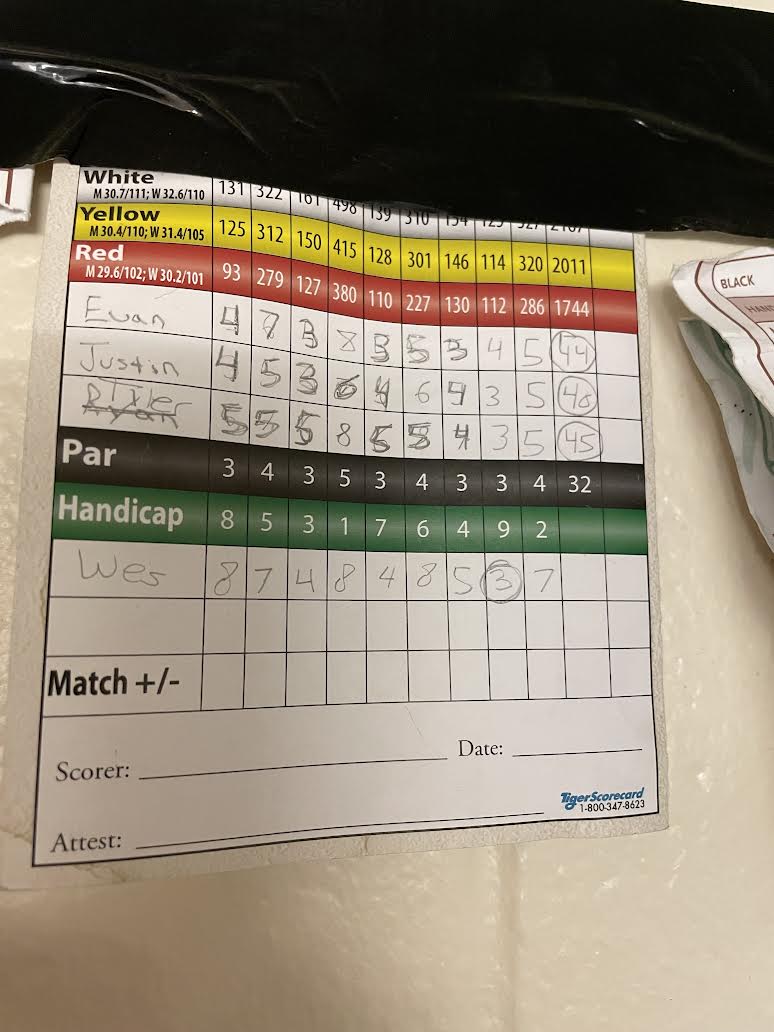 White
M 30.7/111; W 32.6/110 131 322 161 498 139 310 154 125 327 2167
Yellow
M 30.4/110; W 31.4/105 125 312 150 415 128 301 146 114 320 2011
Red
M 29.6/102; W 30.2/101 93 279 127 380 110 227 130 112 286 1744
Evan 4 7 3 8 3 5 3 4 5 44
Justin 4 5 3 6 4 6 4 3 5 40
Tyler 5 5 5 8 5 5 4 3 5 45
Ryan
Par 3 4 3 5 3 4 3 3 4 32
Handicap 8 5 3 1 7 6 4 9 2
Wes 8 7 4 8 4 8 5 3 7
Match +/-
Scorer: Date:
TigerScorecard
1-800-347-8623
Attest:
BLACK